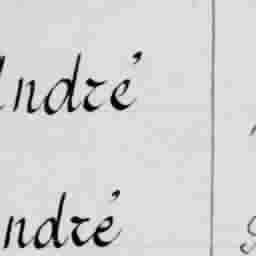 André
ndré